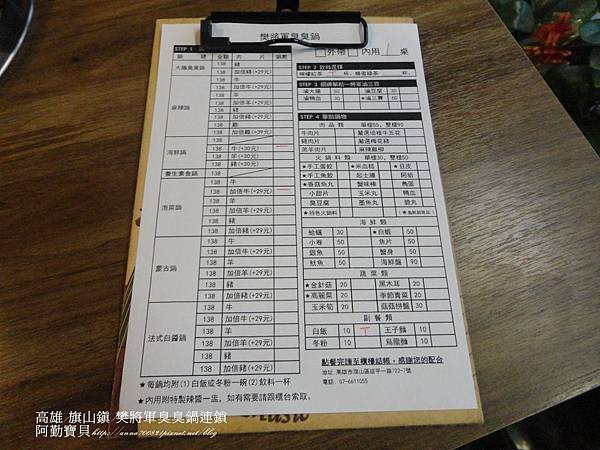 樊將軍臭臭鍋
外帶 內用 1 桌
STEP 1
鍋 類 金額 肉 片 鍋數
大腸臭臭鍋 138 豬
138 加倍豬(+29元)
138 牛
麻辣鍋 138 加倍牛(+29元)
138 羊
138 加倍羊(+29元)
138 豬
138 加倍豬(+39元)
海鮮鍋 138
138 牛(+30元) 一
138 羊(+30元)
138 豬(+30元)
養生素食鍋 138
泡菜鍋 138 牛
138 加倍牛(+29元) 一
138 羊
138 加倍羊(+29元)
138 豬
138 加倍豬(+29元)
蒙古鍋 138 牛
138 加倍牛(+29元)
138 羊
138 加倍羊(+29元)
138 豬
138 加倍豬(+29元)
法式白醬鍋 138 牛
138 加倍牛(+29元)
138 羊
138 加倍羊(+29元)
138 豬
138 加倍豬(+29元)
★每鍋均附(1)白飯或冬粉一碗(2)飲料一杯
★內用附特製辣醬一盅,如有需要請跟櫃台索取。
STEP 2 飲料選擇
檸檬紅茶 杯, 蜂蜜綠茶 杯.
STEP 3 招牌單點一將軍滷三寶
滷大腸 50 滷豆腐 30
滷鴨血 30 ★滷三寶 60
STEP 4 單點鍋物
肉品類 單樣55, 雙樣90
牛肉片 嚴選培根牛五花
豬肉片 嚴選梅花豬
羔羊肉片 麻辣雞柳
火鍋料類 單樣30, 雙樣50
★手工蛋餃 ★米血糕 ★豆皮
★手工魚餃 起士腸 阿給
★香菇魚丸 蟹味棒 魚蛋
小甜片 玉米丸 鴨血
臭豆腐 墨魚丸 脆丸
★特色火鍋料
海鮮類
蛤蠣 30 ★白蝦 50
小卷 50 魚片 50
銀魚 50 蟹身 50
魷魚 50 海鮮盤 90
蔬菜類
★金針菇 20 黑木耳 20
★高麗菜 20 季節青菜 20
玉米筍 20 菇菇拼盤 30
副餐類
白飯 10 王子麵 10
冬粉 10 烏龍麵 10
點餐完請至櫃檯結帳,感謝您的配合
地址:高雄市旗山區延平一路722-7號
電話: 07-6611055
高雄 旗山鎮 樊將軍臭臭鍋連鎖
阿勤寶貝 http://anna70082.pixnet.net/blog